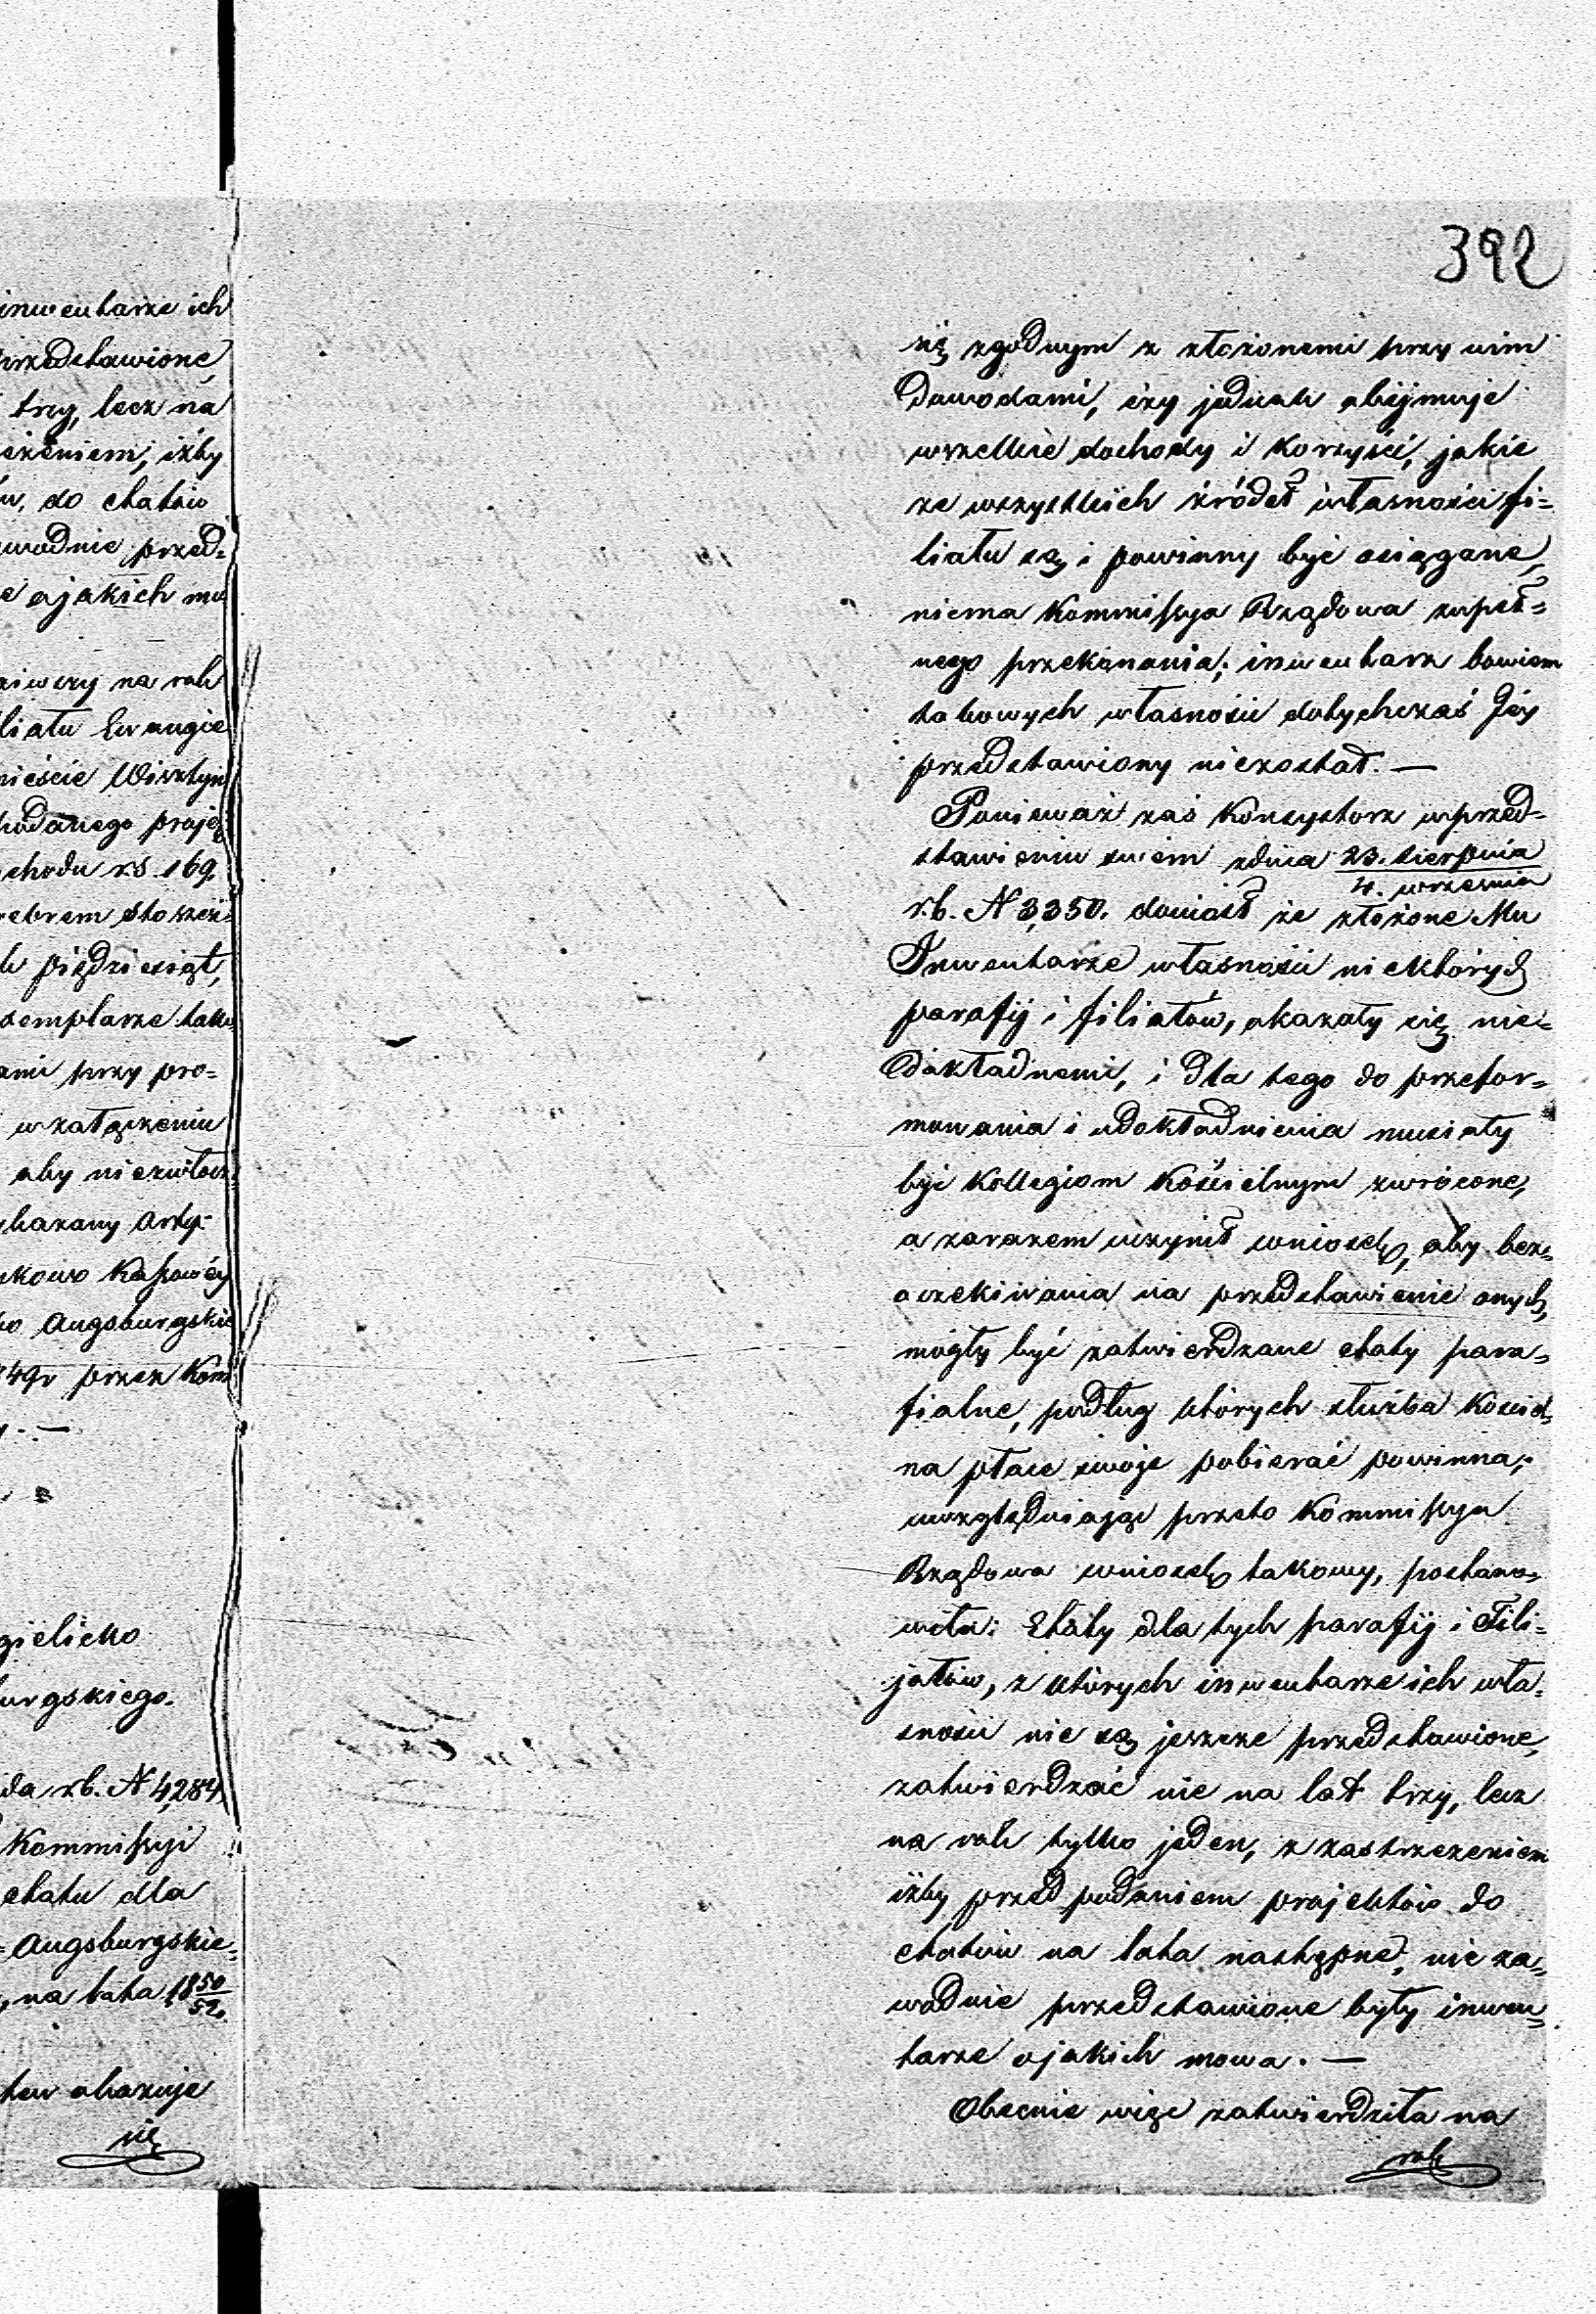 inwentarze ich
przedstawione,
trzy, lecz na
eżeniem, iżby
ów, do etatów
wodnie przed=
e o jakich mo
ziwszy na rok
liatu Ewangie
mieście Wisztyn
chodu rs. 169,
rebrem Sto sześć
pięździesiąt,
xemplarze tak
ami przy pro=
w załączeniu
aby niezwłocz
kazany Arty=
Kassowéy
Augsburgskie
849r przez Kom
gielicko
burgskiego.
da r.b. N 4,284
Kommissyi
etatu dla
= Augsburgskie=
, na lata 1850/52.
ten okazuje
się
392
się zgodnym z złożonemi przy nim
Dowodami, czy jednak obejmuje
wszelkie dochody i korzyści, jakie
ze wszystkich źródeł własności fi=
liału są i powinny być osiągane,
niema Kommissya Rządowa zupeł=
nego przekonania; inwentarz bowiem
takowych własności dotychczas Jéy
przedstawiony niezostał. —
Ponieważ zaś Konsystorz w przed=
stawieniu swém z dnia 23. sierpnia / 4. września
r.b. N 3,350. doniósł że złożone Mu
Inwentarze własności niektórych
parafij i filiałów, okazały się nie=
Dokładnemi, i Dla tego do przefor=
mowania i udokładnienia musiały
być Kollegiom Kościelnym zwrócone,
a zarazem uczynił wniosek, aby bez
oczekiwania na przedstawienie onych,
mogły być zatwierdzane etaty para=
fialne, podług których służba Kościel=
na płace swoje pobierać powinna;
uwzględniając przeto Kommissya
Rządowa wniosek takowy, postano=
wiła: Etaty dla tych parafij i Fili=
jałów, z których inwentarze ich wła=
sności nie są jeszcze przedstawione,
zatwierdzać nie na lat trzy, lecz
na rok tylko jeden, z zastrzeżeniem
iżby przed podaniem projektów do
etatów na lata następne, nieza=
wodnie przedstawione były inwen=
tarze o jakich mowa. —
Obecnie więc zatwierdziła na
rok